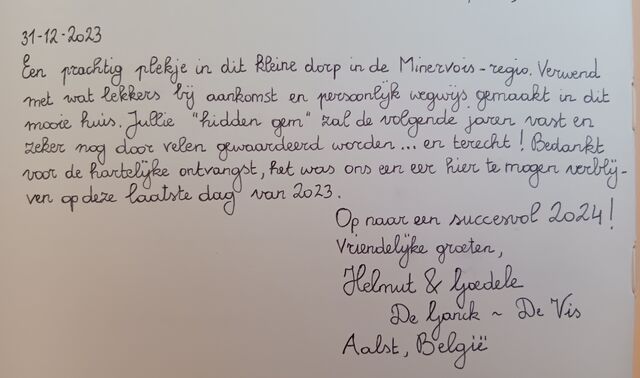 31-12-2023
Een prachtig plekje in dit kleine dorp in de Minervois-regio. Verwend
met wat lekkers bij aankomst en persoonlijk wegwijs gemaakt in dit
mooie huis. Jullie "hidden gem" zal de volgende jaren vast en
zeker nog door velen gewaardeerd worden... en terecht! Bedankt
voor de hartelijke ontvangst, het was ons een eer hier te mogen verblij-
ven op deze laatste dag van 2023.
Op naar een succesvol 2024!
Vriendelijke groeten,
Helmut & Goedele
De Ganck ~ De Vis
Aalst, België